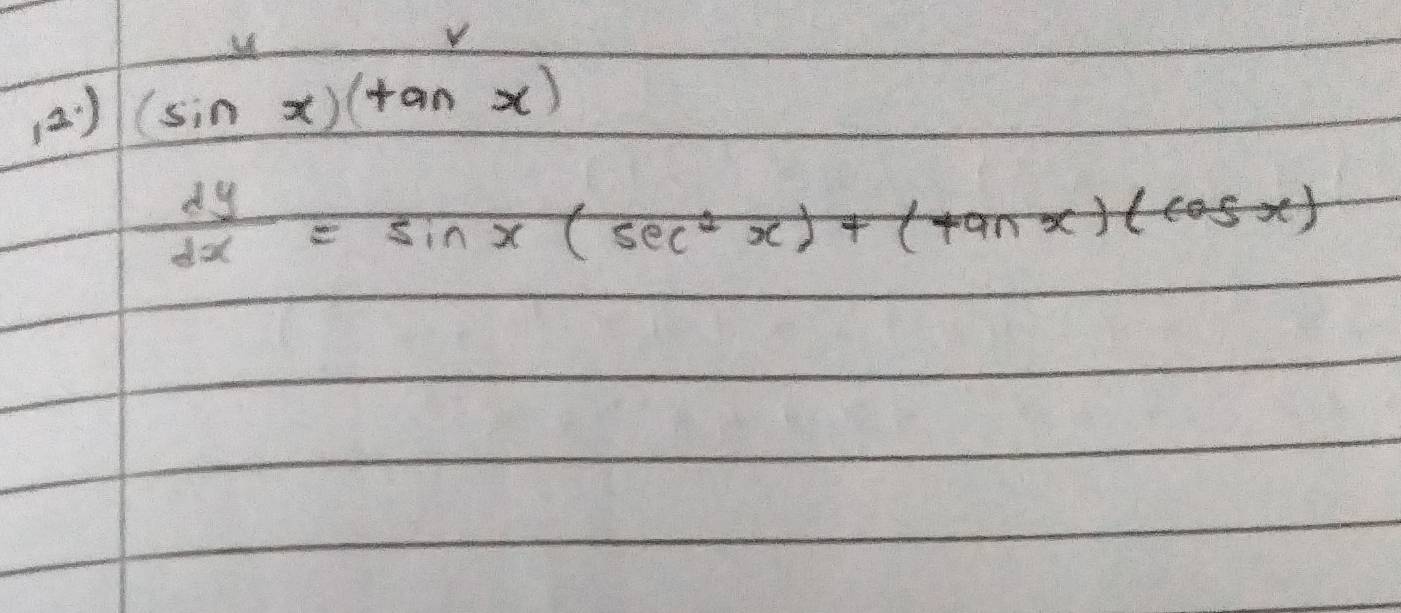 u v
12.) (sin x)(tan x)
dy/dx = sin x (sec² x) + (tan x)(cos x)